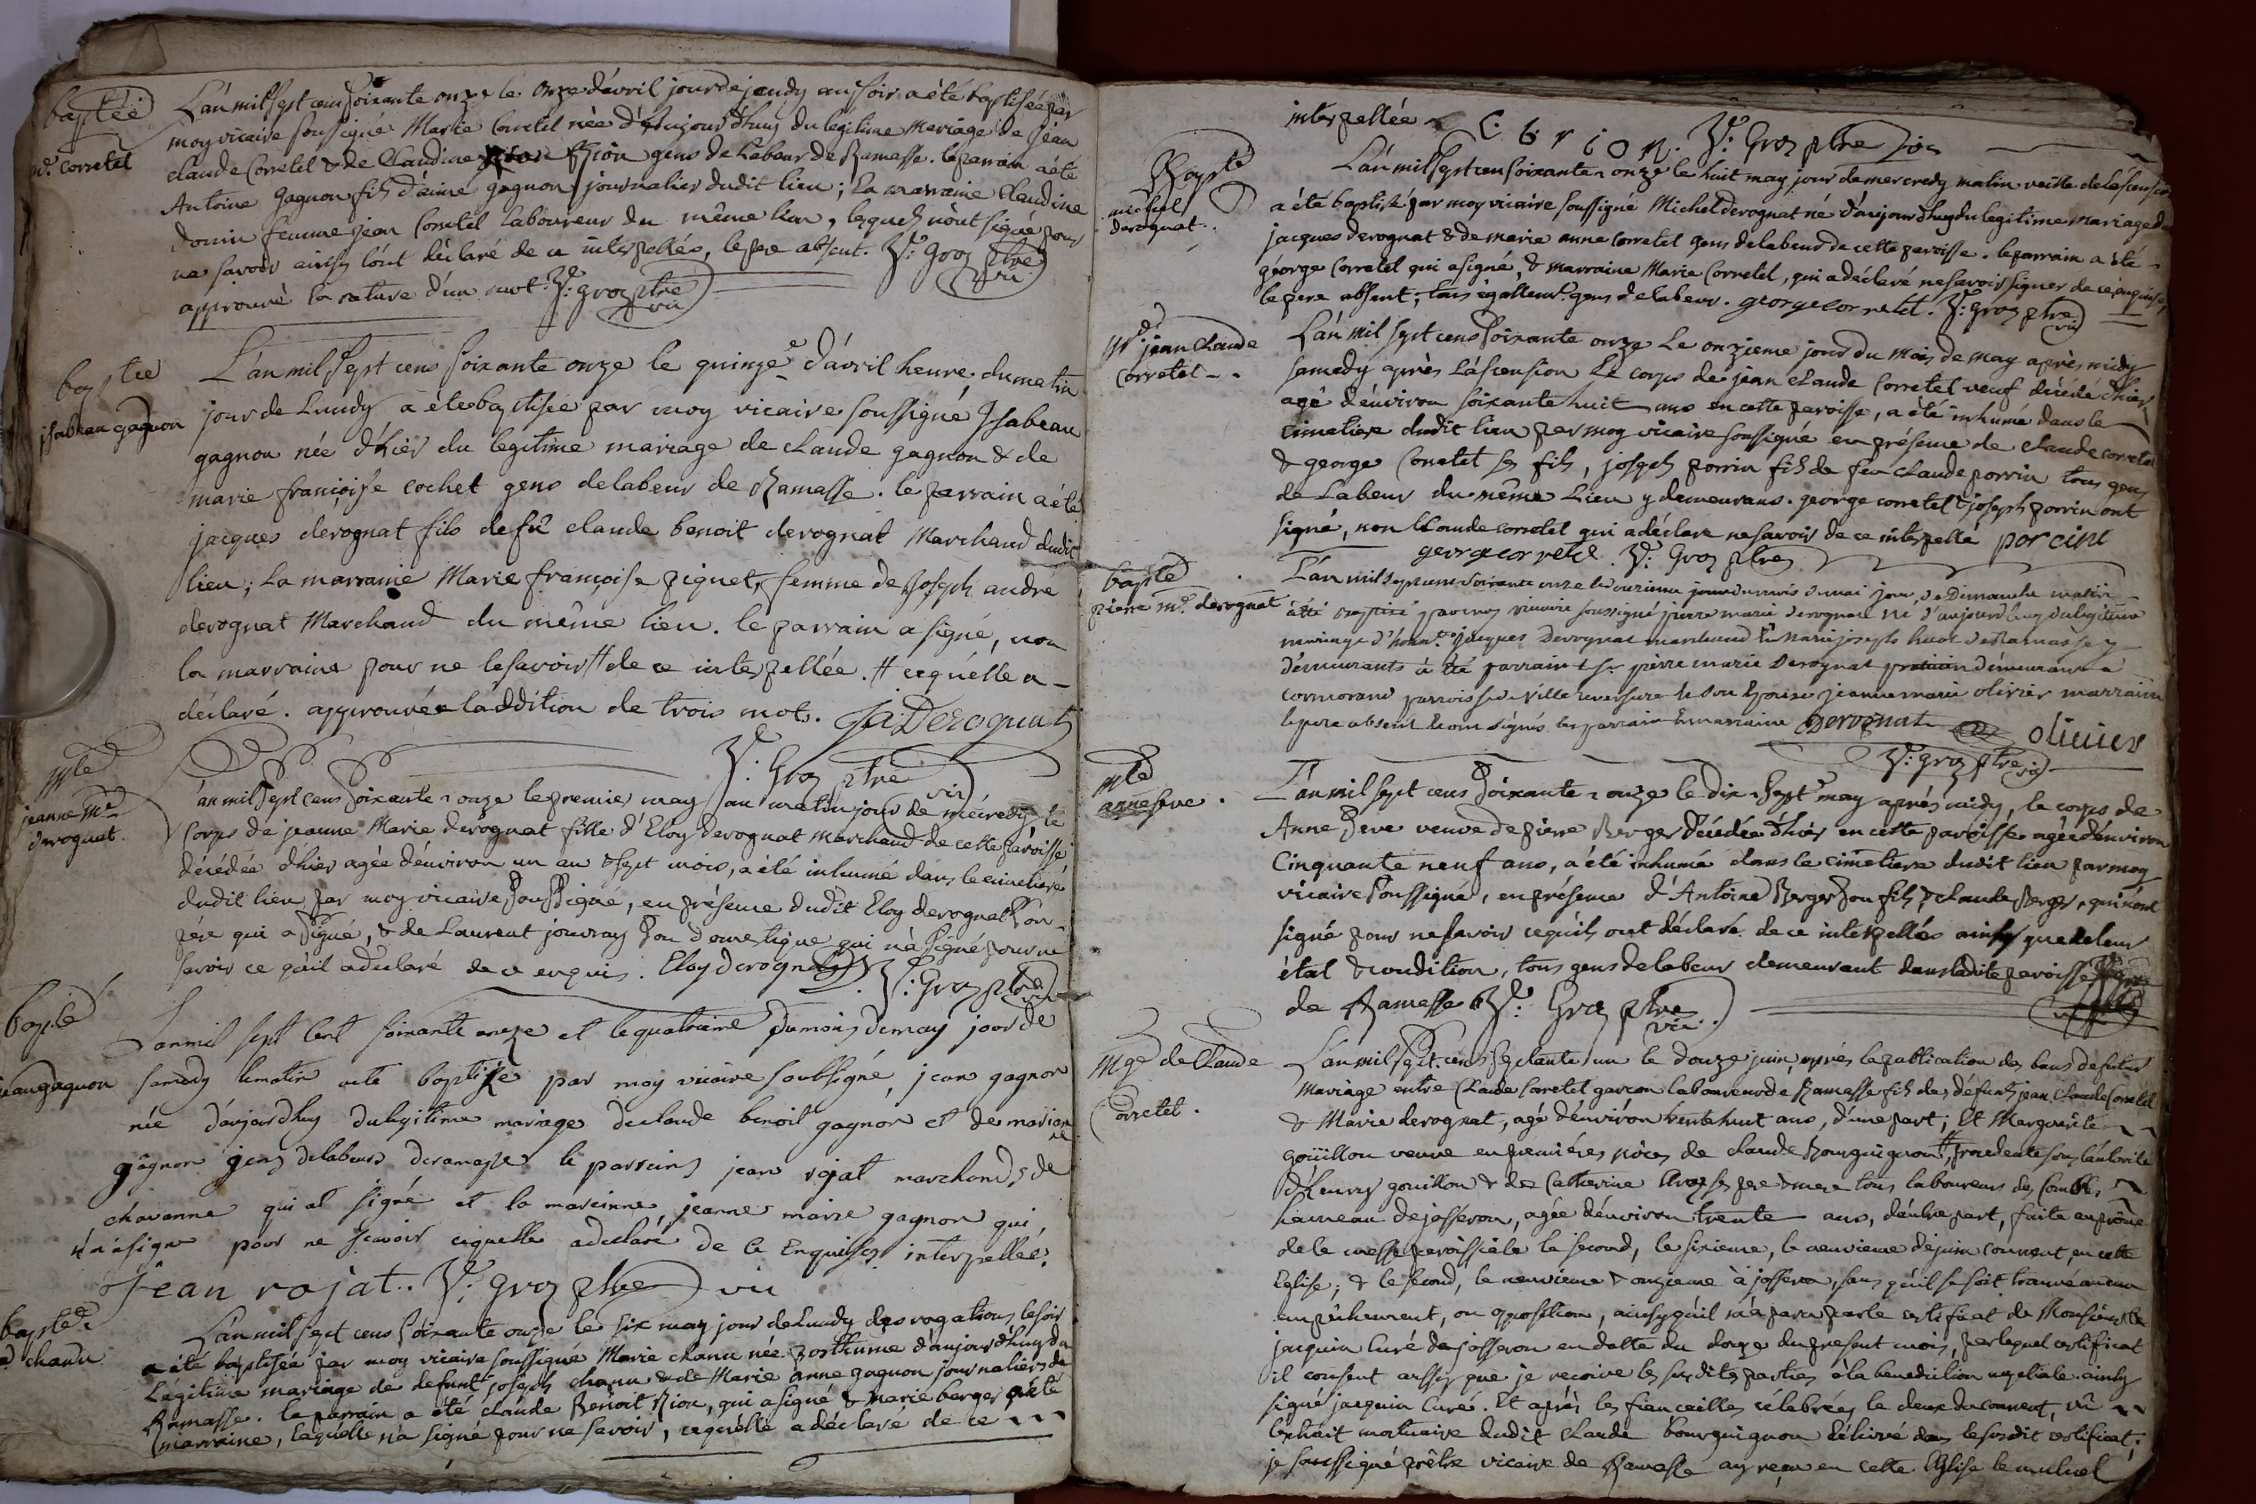 baptée
Me. corretel
L'an mil sept cens soixante onze le onze d'avril jour de jeudy au soir a été baptisée par
moy vicaire soussigné Marie Corretel née d'aujourd'huy du legitime mariage de Jean
claude Corretel & de Claudine Rion gens de Labeur de Ramasse. le parrain a été
Antoine Gagnon fils d'aimé gagnon journalier dudit lieu; la marraine Claudine
femme jean Corretel Laboureur du même lieu, lesquels n'ont signé pour
ne savoir ainsy l'ont déclaré de ce interpellés, le pere absent. Groz ptre vic
approuvé la rature d'un mot. Groz ptre vic
baptée
jsabeau gagnon
L'an mil sept cens soixante onze le quinze d'avril heure du matin
jour de Lundy a été baptisée par moy vicaire soussigné Jsabeau
gagnon née d'hier du legitime mariage de claude gagnon & de
marie françoise cochet gens de labeur de Ramasse. le parrain a été
jacques derognat fils de fû claude benoit derognat Marchand dudit
lieu; La marraine Marie françoise piquet, femme de Joseph andré
derognat Marchand du même lieu. le parrain a signé, non
la marraine pour ne le savoir # de ce interpellée. # ce qu'elle a
déclaré. approuvée l'addition de trois mots. Ja Derognat
Groz ptre vic
Mte
jeanne Me
derognat.
L'an mil sept cens soixante onze le premier may au matin jour de mécredy le
Corps de jeanne Marie derognat fille d'Eloy derognat marchand de cette paroisse
décédée d'hier agée d'environ un an & sept mois, a été inhumé dans le cimetiere
dudit lieu par moy vicaire soussigné, en présence dudit Eloy derognat son
père qui a signé, & de Laurent jouvray son domestique qui n'a signé pour ne
savoir ce qu'il a déclaré de ce enquis. Eloy derognat. Groz ptre vic
baptée
jean gagnon
Lanmil sept cent soixante onze et le quatrieme du mois de may jour de
samedy le matin a été baptizé par moy vicaire soubsigné, jean gagnon
née d'aujourdhuy du legitime mariage de claude benoit gagnon et de marianne
gagnon gens de labeurs de ramasse le parreins jean rojat marchand, de
chavanne qui at signé et la mareinne, jeanne marie gagnon qui
n'a signe pour ne scavoir cequelle adeclaré de ce Enquise, interpellée,
Jean rojat. Groz ptre vic
baptée
chanu
L'an mil sept cens soixante onze le six may jour de Lundy des rogations le soir
a été baptisée par moy vicaire soussigné Marie chanu née posthume d'aujourd'huy du
Légitime mariage de defunt joseph chanu & de Marie anne gagnon journaliers de
Ramasse. le parrain a été claude Benoit Rion, qui a signé & marie berger a été
marraine, laquelle n'a signé pour ne savoir, ce qu'elle a déclaré de ce
interpellée C. b. r i o n. Groz ptre vic
Bapté
michel
derognat.
L'an mil sept cens soixante onze le huit may jour de mercredy matin veille de L'ascension
a été baptisé par moy vicaire soussigné Michel derognat né d'aujourd'huy du legitime mariage de
jacques derognat & de marie anne corretel gens de labeur de cette paroisse. le parrain a été
george Corretel qui a signé, & marraine Marie Corretel, qui a déclaré ne savoir signer de ce enquise,
le pere absent; tous égallemt. gens de labeur. george corretel. Groz ptre vic
Mt. jean Claude
Corretel
L'an mil sept cens soixante onze Le onzieme jour du mois de may après midy
samedy après L'ascension Le corps de jean claude Corretel veuf décédé d'hier
agé d'environ soixante huit ans en cette paroisse, a été inhumé dans le
cimetiere dudit lieu par moy vicaire soussigné en présence de claude corretel
& george Corretel ses fils, joseph porrin fils de feu claude porrin tous gens
de Labeur du même Lieu y demeurans. george corretel & joseph porrin ont
signé, non Claude corretel qui a déclaré ne savoir de ce interpellé porcint
george corretel. Groz ptre
bapté
pierre me. derognat
L'an mil sept cens soixante onze le jour du mois de mai jour de Dimanche matin
a été baptisé par moy vicaire soussigné pierre marie derognat né d'aujourd'huy du legitime
mariage d'honte. jacques Derognat marchand & marie joseph huot de Ramasse y
demeurants a été parrain sr. pierre marie Derognat praticien demeurant a
cormorans parroisse de Ville reversure & Jeanne marie olivier marraine
le pere absent & ont signés les parrain & marraine Derognat olivier
Groz ptre vic
Mte
anne seve.
L'an mil sept cens soixante onze le dix sept may après midy, le corps de
Anne Seve veuve de pierre Berger décédée d'hier en cette paroisse agée d'environ
Cinquante neuf ans, a été inhumé dans le cimetiere dudit lieu par moy
vicaire soussigné, en présence d'Antoine Berger son fils, & claude Berger, qui n'ont
signé pour ne savoir ce qu'ils ont déclaré de ce interpellés ainsy que de leur
état & condition, tous gens de labeur demeurant dans ladite paroisse
de Ramasse. Groz ptre vic.
Mge de Claude
Corretel.
L'an mil sept cens septante un le douze juin, après la publication des bans de futur
Mariage entre Claude Corretel garcon laboureur de Ramasse fils des défunts jean Claude Corretel
& Marie derognat, agé d'environ trente huit ans, d'une part; Et Marguerite
goüillon veuve en premières nôces de claude Bourguignon #, procedente sous l'autorité
d'henry gouillon & de Catherine ses pere & mere tous laboureurs des Combes
hameau de josseron, agée d'environ trente ans, d'autre part, faite au prône
de la messe paroissiale le second, le sixieme, le neuvieme de juin courrent, en cette
Eglise; & le second, le neuvieme & onzieme à josseron, sans qu'il se soit trouvé aucun
empêchement, ou opposition, ainsy qu'il m'a paru par le certificat de Monsieur
jacquin Curé de josseron en datte du douze du present mois, par lequel certificat
il consent aussy que je reçoive les susdites parties à la benediction nuptiale. ainsy
signé jacquin Curé. Et après les fiancailles célébrées le deux du courrent, vû
l'extrait mortuaire dudit claude bourguignon délivré dans le susdit certificat;
je soussigné prêtre vicaire de Ramasse ay reçu en cette Eglise le mutuel